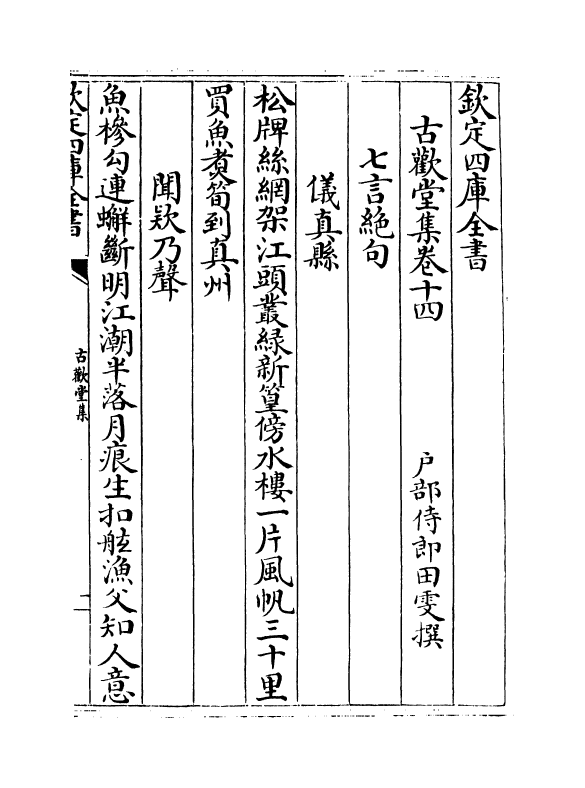 欽定四庫全書
古歡堂集卷十四
户部侍郎田雯撰
七言絶句
儀真縣
松牌絲網架江頭叢緑新篁傍水樓一片風帆三十里
買魚煑筍到真州
聞欵乃聲
魚槮勾連蠏斷明江潮半落月痕生扣舷漁父知人意
欽定四庫全書
古歡堂集
一